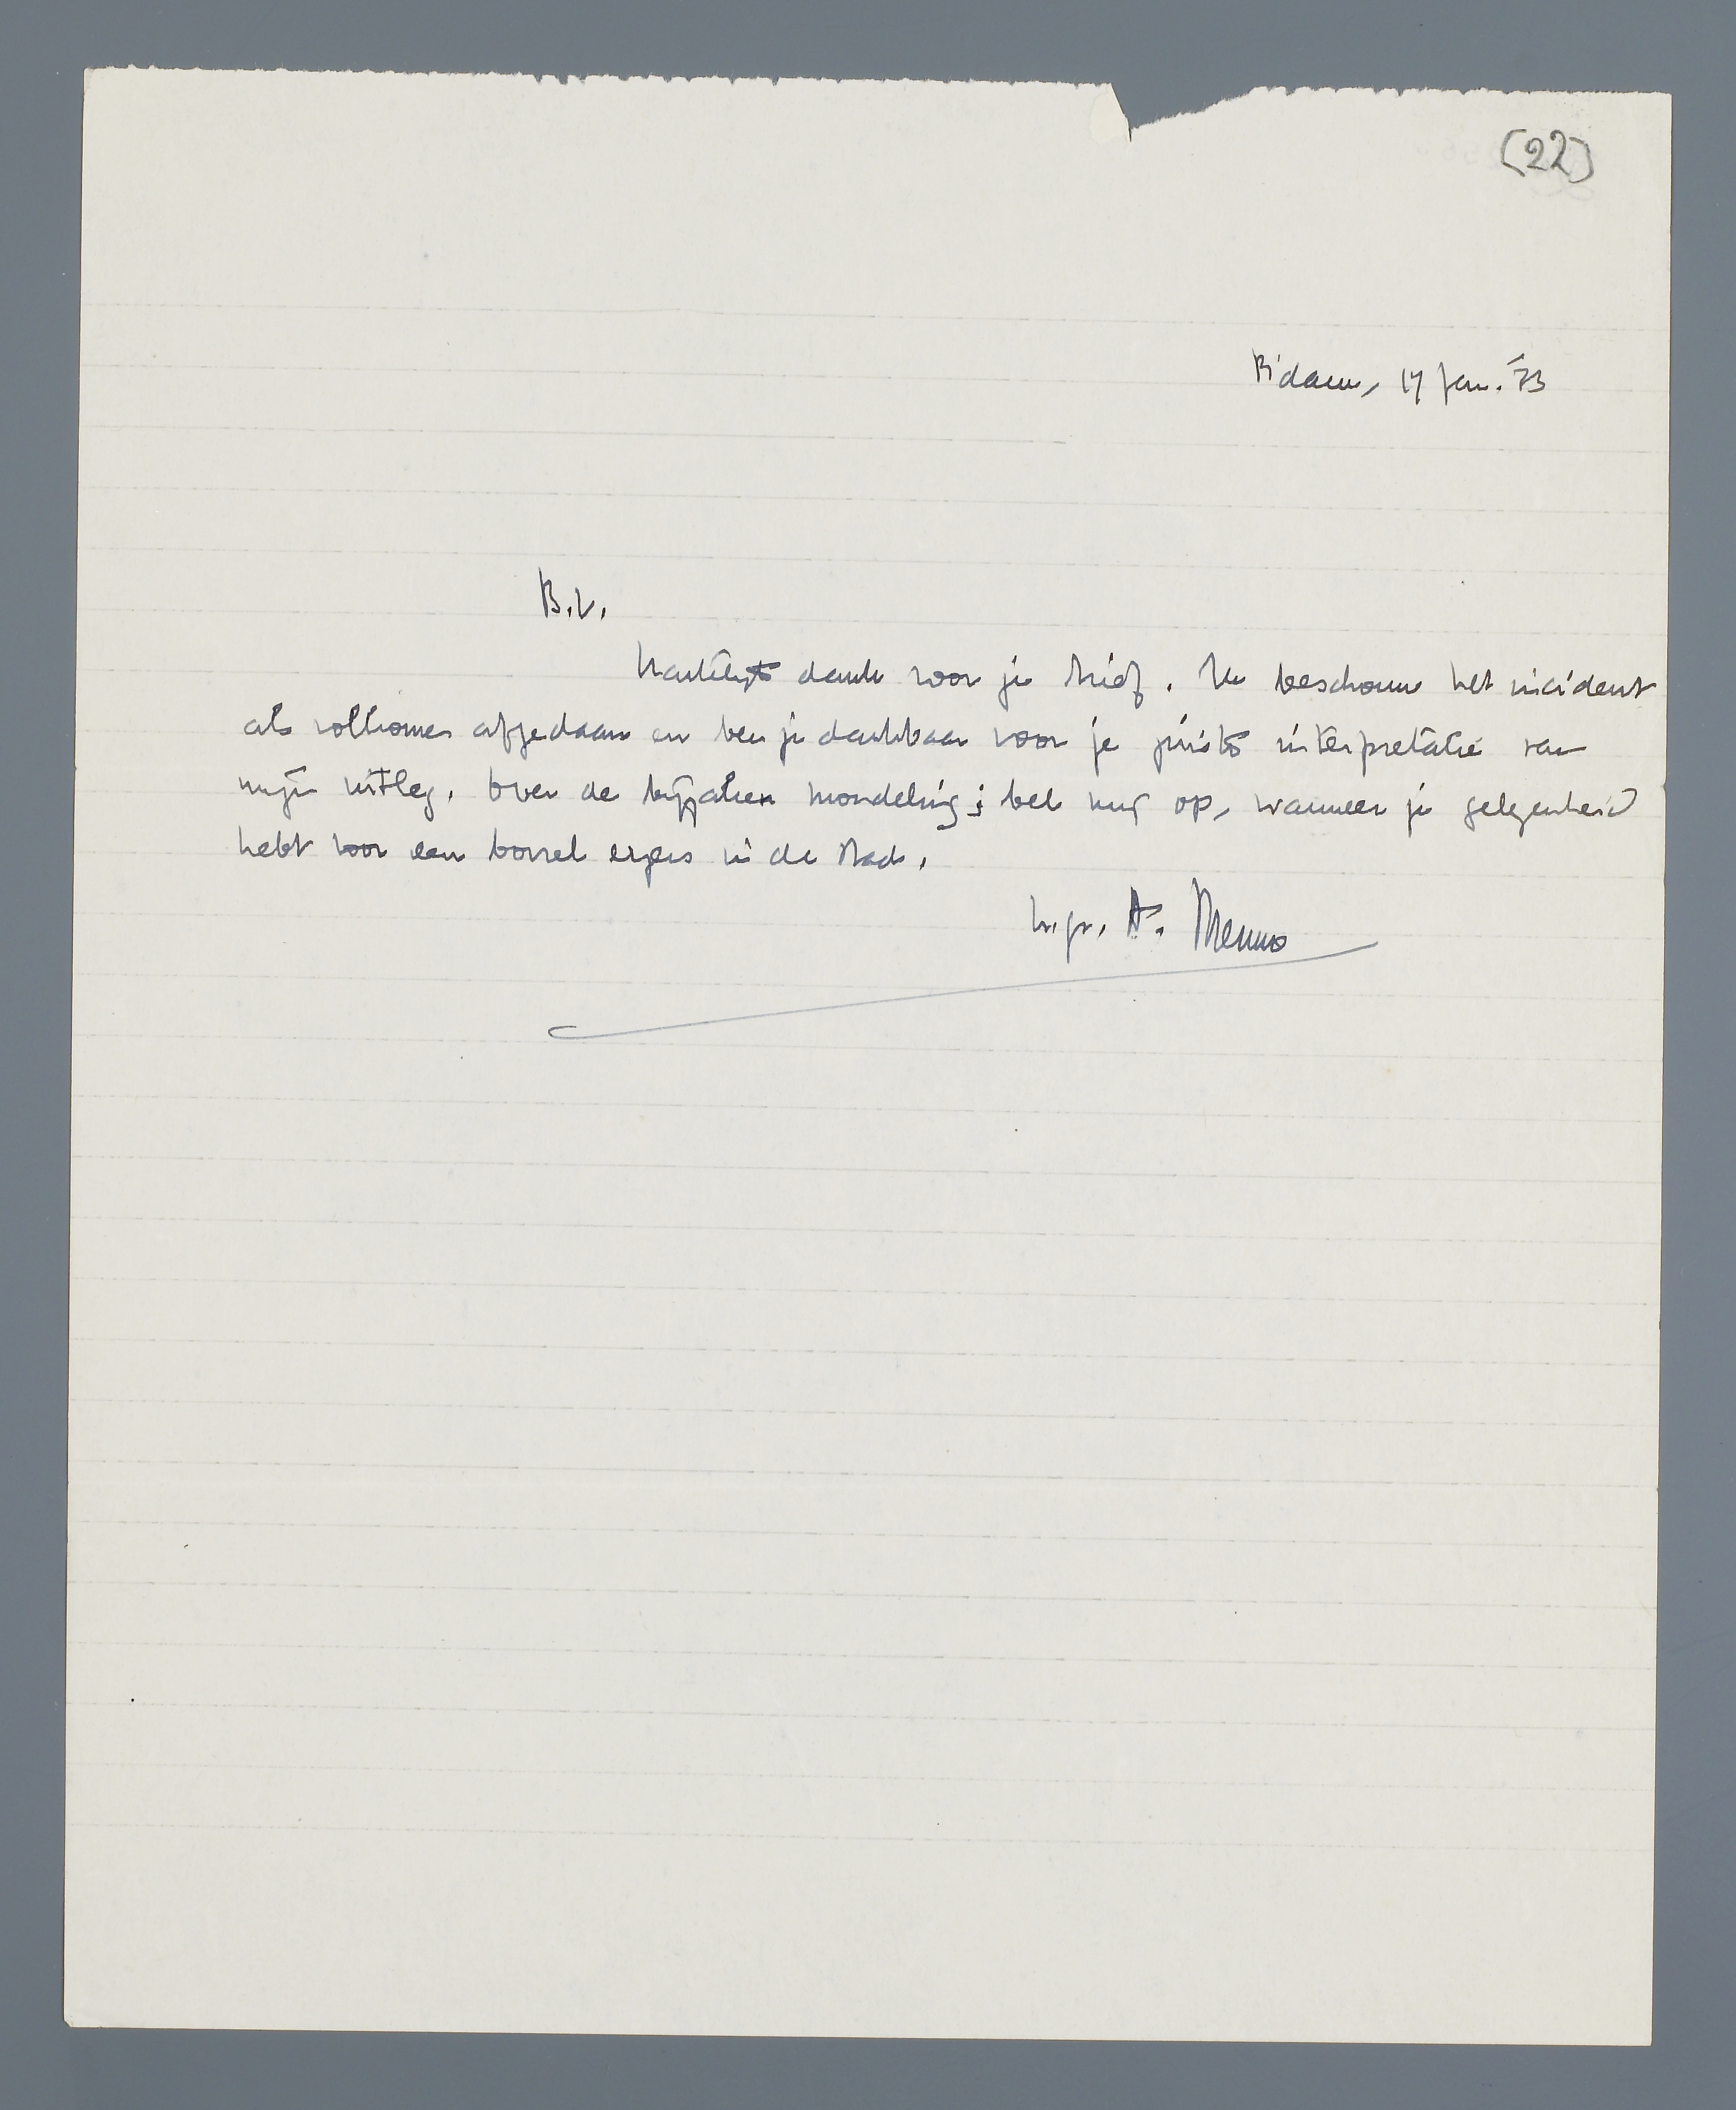 (22)
R'dam, 17 jan. '73
B.V.
Hartelijk dank voor je brief. Ik beschouw het incident
als volkomen afgedaan en ben je dankbaar voor je juiste interpretatie van
mijn uitleg. Over de bijzaken mondeling; bel mij op, wanneer je gelegenheid
hebt voor een borrel ergens in de stad.
h.gr. A. Menno